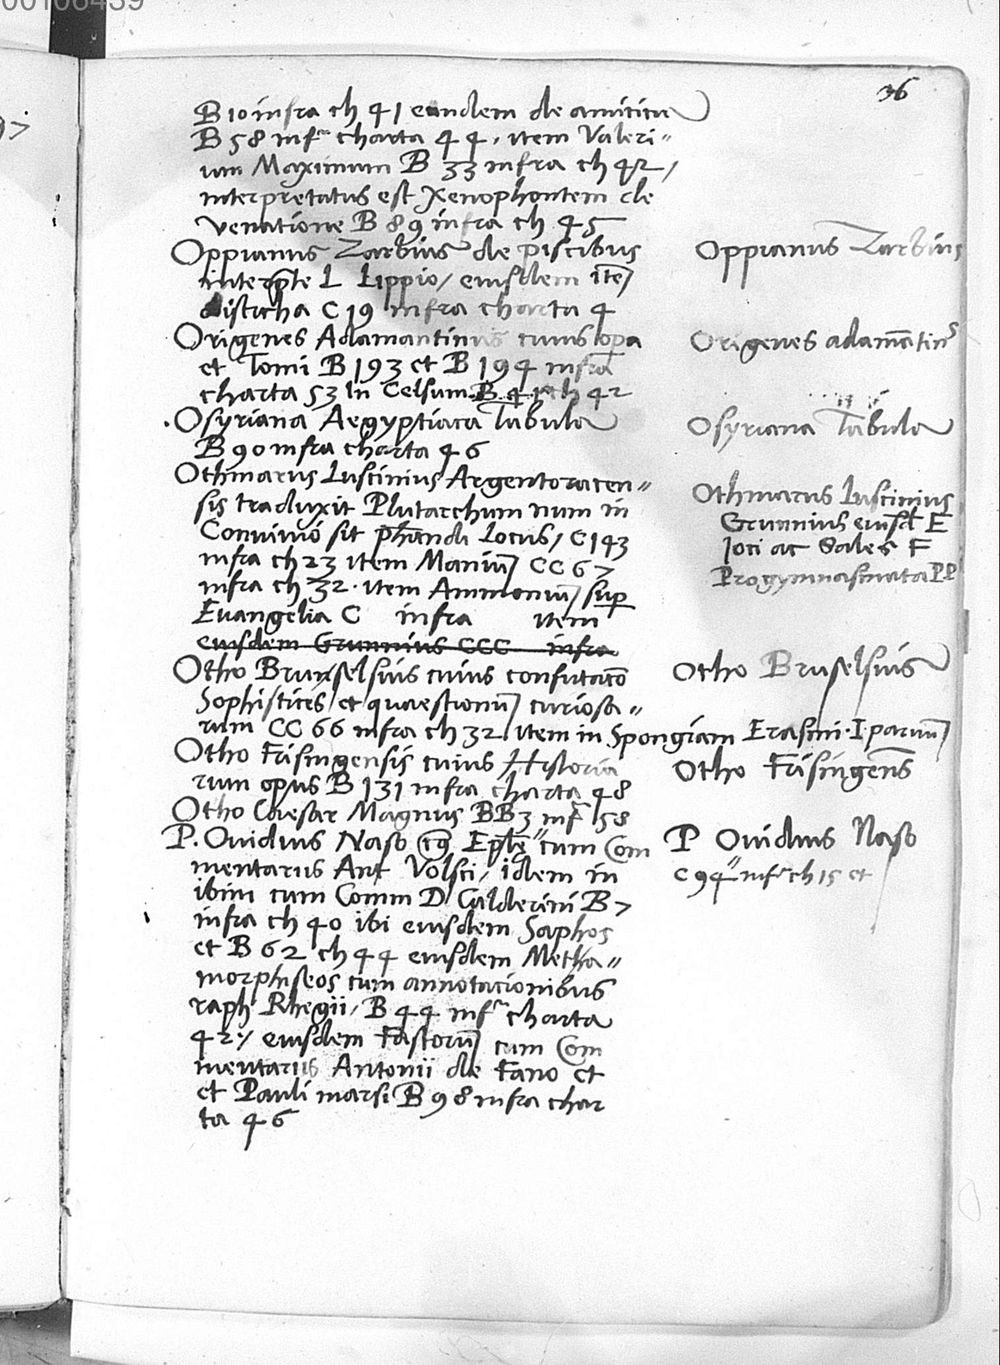 36
B 10 infra ch 41 eandem de amicitia
B 58 infr charta 44, item Valeri=
um Maximum B 33 infra ch 42,
interpretatus est Xenophontem de
venatione B 89 infra ch 45
Oppianus Zarbius de piscibus
interprete L Lippio, eiusdem ite
disticha C 19 infra charta 4
Origenes Adamantinus cuius opa
et Tomi B 193 et B 194 infra
charta 53 In Celsum B 41 ch 42
Osyriana Aegyptiaca Tabula
B 90 infra charta 46
Othmarus Luscinius Argentoracen=
sis traduxit Plutarchum num in
Convivio sit phandi Locus, C 143
infra ch 23 item Maniu CC 67
infra ch 32. item Ammoniu sup
Evangelia C infra item
eiusdem Grunnius CCC infra
Otho Brunselsius cuius confutaco
Sophistices et quaestionu curiosa=
rum CC 66 infra ch 32 item in Spongiam Erasmi. I parvu
Otho Frisingensis cuius Historia
rum opus B 131 infra charta 48
Otho Caesar Magnus BB 3 inf 58
P. Ovidius Naso Eple cum Com
mentarius Ant Volsci, idem in
ibim cum Comm D Calderini B 7
infra ch 40 ibi eiusdem Saphos
et B 62 ch 44 eiusdem Metha=
morphiseos cum annotacionibus
raph Rhegii, B 44 infr charta
42, eiusdem Fastoru cum Com
mentariis Antonii de Fano et
et Pauli marsi B 98 infra char
ta 46
Oppianus Zarbius
Origenes adamatin9
Osyriana Tabula
Othmarus Luscinius
Grunnius eiusd E
Joci ac Sales F
Progymnasmata PP
Otho Bruselsius
Otho Frisingens
P Ovidius Naso
C 94 infr ch 15 et